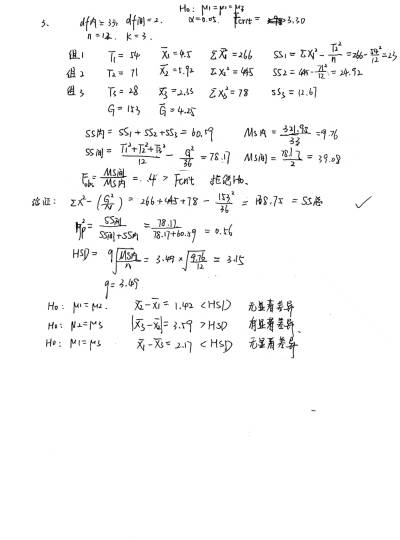 H₀: μ₁=μ₂=μ₃
3. df内=33, df间=2. α=0.05. Fcrit= 3.30
n=12. k=3.
组1 T₁=54 X̄₁=4.5 ΣX₁²=266 SS₁=ΣX₁²-T₁²/n=266-54²/12=23
组2 T₂=71 X̄₂=5.92 ΣX₂²=445 SS₂=445-71²/12=24.92
组3 T₃=28 X̄₃=2.33 ΣX₃²=78 SS₃=12.67
G=153 Ḡ=4.25
SS内=SS₁+SS₂+SS₃=60.59 MS内=321.92/33=9.76
SS间=(T₁²+T₂²+T₃²)/12-G²/36=78.17 MS间=78.17/2=39.08
Fobs=MS间/MS内=.4>Fcrit 拒绝H₀.
验证: ΣX²-(G²/N)=266+445+78-153²/36=138.75=SS总 ✓
η²p=SS间/(SS间+SS内)=78.17/(78.17+60.59)=0.56
HSD=q√(MS内/n)=3.49×√(9.76/12)=3.15
q=3.49
H₀: μ₁=μ₂. X̄₂-X̄₁=1.42<HSD 无显著差异
H₀: μ₂=μ₃ |X̄₃-X̄₂|=3.59>HSD 有显著差异.
H₀: μ₁=μ₃ X̄₁-X̄₃=2.17<HSD 无显著差异